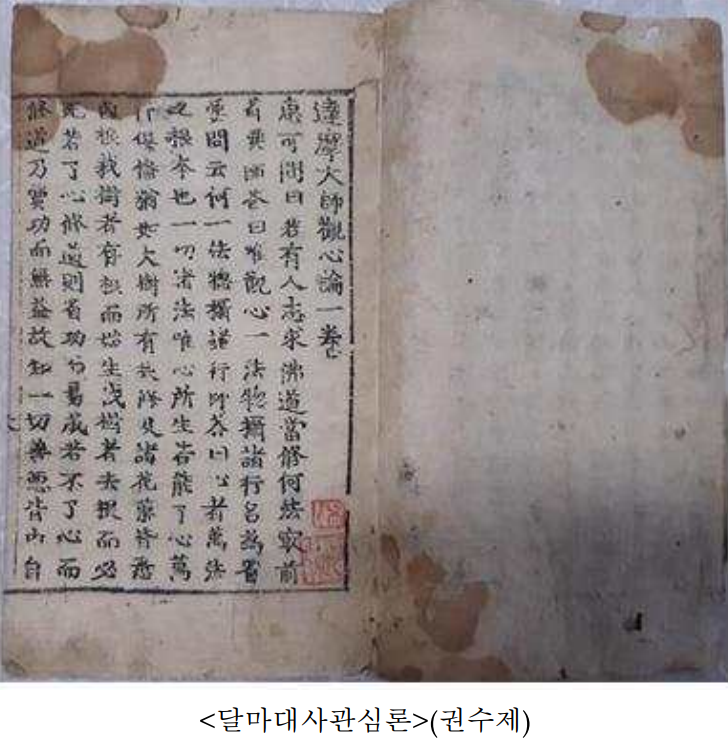 達摩大師觀心論一卷
惠可問曰若有人志求佛道當修何法寂前
省要師答曰唯觀心一法惣攝諸行名爲省
要問云何一法惣攝諸行 答曰心者萬法
之根本也一切諸法唯心所生若能了心萬
行俱備猶如大樹所有枝條及諸花菓皆悉
因根栽樹者存根而始生伐樹者去根而必
死若了心修道則省功 易成若不了心而
修道乃費功而無益故知一切善惡皆由自
<달마대사관심론>(권수제)